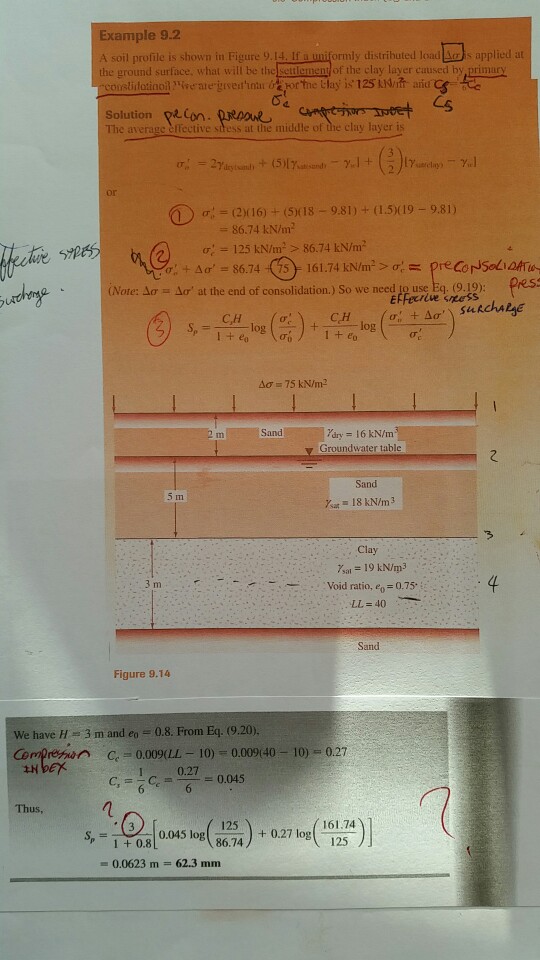 Example 9.2
A soil profile is shown in Figure 9.14. If a uniformly distributed load Δσ is applied at
the ground surface, what will be the settlement of the clay layer caused by primary
consolidation? We are given that σ'c for the clay is 125 kN/m² and Cs = 1/6 Cc
σ'c
Cs
Solution precon. pressure
The average effective stress at the middle of the clay layer is
σ'o = 2γdry(sand) + (5)[γsat(sand) − γw] + (3/2)[γsat(clay) − γw]
or
① σ'o = (2)(16) + (5)(18 − 9.81) + (1.5)(19 − 9.81)
= 86.74 kN/m²
effective stress
② σ'c = 125 kN/m² > 86.74 kN/m²
σ'o + Δσ' = 86.74 + 75 = 161.74 kN/m² > σ'c = preconsolidation
press
surcharge.
(Note: Δσ = Δσ' at the end of consolidation.) So we need to use Eq. (9.19):
EFFECTIVE STRESS
SURCHARGE
③ Sp = CsH/(1 + eo) log (σ'c/σ'o) + CcH/(1 + eo) log ((σ'o + Δσ')/σ'c)
Δσ = 75 kN/m²
1
2 m
Sand
γdry = 16 kN/m³
Groundwater table
2
5 m
Sand
γsat = 18 kN/m³
3
Clay
γsat = 19 kN/m³
3 m
Void ratio, e0 = 0.75
4
LL = 40
Sand
Figure 9.14
We have H = 3 m and e0 = 0.8. From Eq. (9.20),
Compression
INDEX
Cc = 0.009(LL − 10) = 0.009(40 − 10) = 0.27
Cs = 1/6 Cc = 0.27/6 = 0.045
Thus,
?
?
Sp = 3/(1 + 0.8) [0.045 log(125/86.74) + 0.27 log(161.74/125)]
= 0.0623 m = 62.3 mm